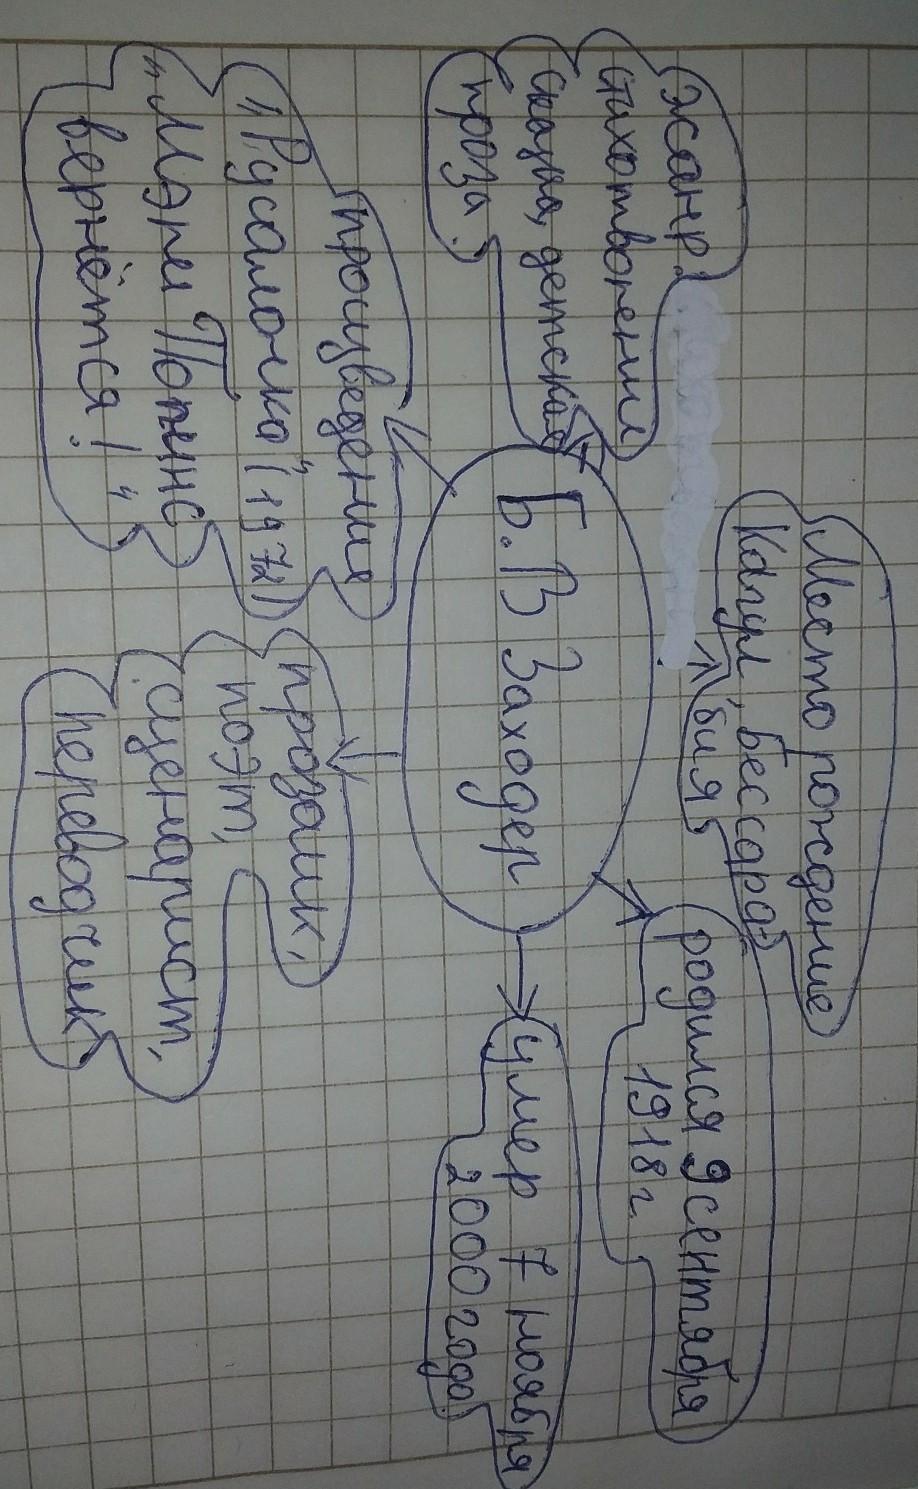 Место рождение
Кагул, бессара-
бия
родился 9 сентября
1918 г.
умер 7 ноября
2000 года
Б. В Заходер
жанр
стихотворения
сказка, детская
проза.
произведение
"Русалочка" (1972)
"Мэри Поппинс
вернётся!"
прозаик,
поэт,
сценарист,
переводчик